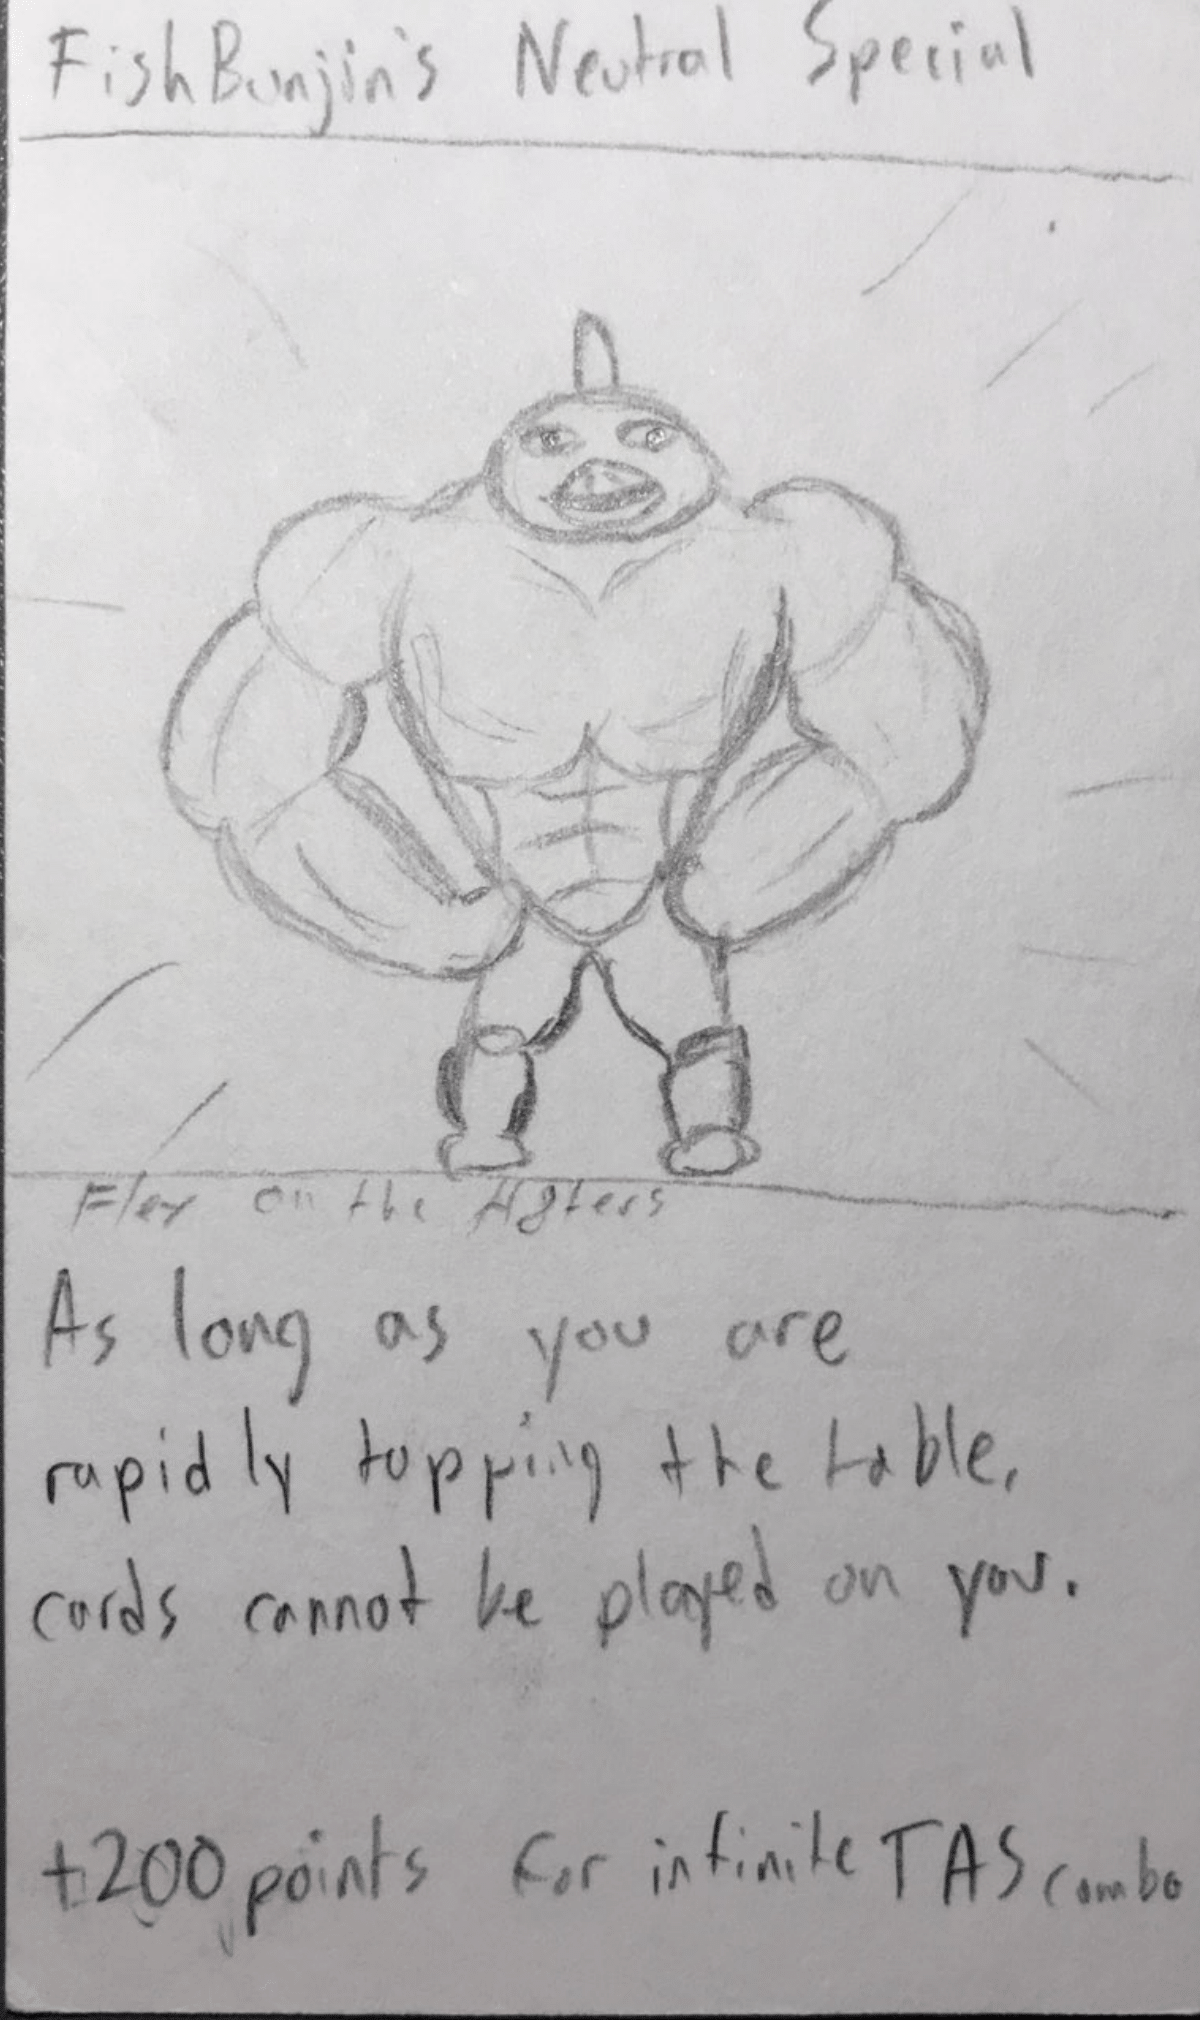 FishBunjin's Neutral Special
Flex on the H8ters
As long as you are
rapidly tapping the table,
cards cannot be played on you.
+200 points for infinite TAS combo